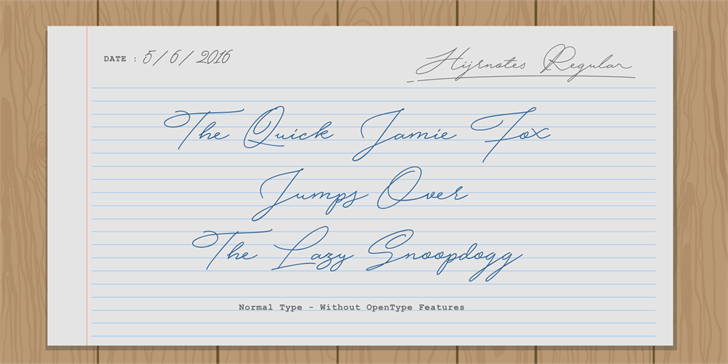 DATE : 5/6/2016
Hijrnotes Regular
The Quick Jamie Fox
Jumps Over
The Lazy Snoopdogg
Normal Type - Without OpenType Features